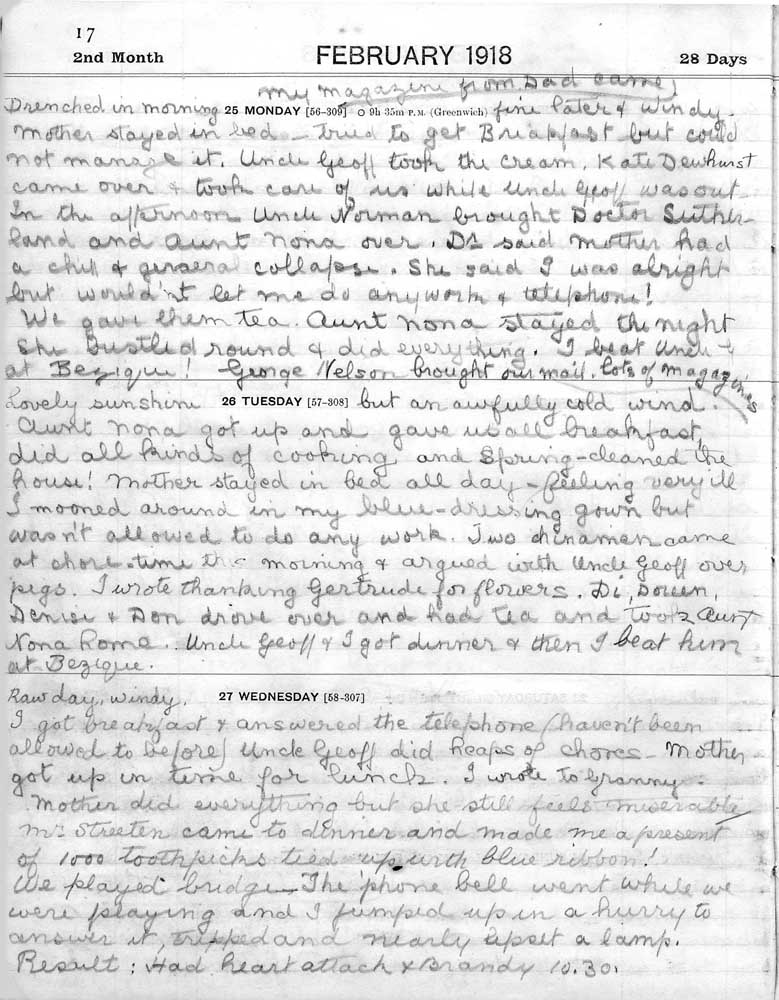 17
2nd Month FEBRUARY 1918 28 Days
my magazine from Dad came,
Drenched in morning 25 MONDAY [56-309] O 9h 35m P.M. (Greenwich) fine later & windy.
Mother stayed in bed – tried to get Breakfast but could
not manage it. Uncle Geoff took the cream. Kate Dewhurst
came over & took care of us while Uncle Geoff was out
In the afternoon Uncle Norman brought Doctor Suther-
land and Aunt Nona over. Dr said Mother had
a chill & general collapse. She said I was alright
but would'nt let me do any work & telephone!
We gave them tea. Aunt Nona stayed the night
She bustled round & did everything. I beat Uncle G
at Bezique! George Nelson brought our mail, lots of magazines
Lovely sunshine 26 TUESDAY [57-308] but an awfully cold wind.
Aunt Nona got up and gave us all breakfast,
did all kinds of cooking and Spring-cleaned the
house! Mother stayed in bed all day – feeling very ill
I mooned around in my blue-dressing gown but
wasn't allowed to do any work. Two chinamen came
at chore-time this morning & argued with Uncle Geoff over
pigs. I wrote thanking Gertrude for flowers. Di,
Denise & Don drove over and had tea and took Aunt
Nona home. Uncle Geoff & I got dinner & then I beat him
at Bezique.
Raw day, windy. 27 WEDNESDAY [58-307]
I got breakfast & answered the telephone (haven't been
allowed to before) Uncle Geoff did heaps of chores – Mother
got up in time for lunch. I wrote to Granny.
Mother did everything but she still feels miserable
Mr Streeten came to dinner and made me a present
of 1000 toothpicks tied up with blue ribbon!
We played bridge – The 'phone bell went while we
were playing and I jumped up in a hurry to
answer it, tripped and nearly upset a lamp.
Result: Had heart attack & Brandy 10.30.